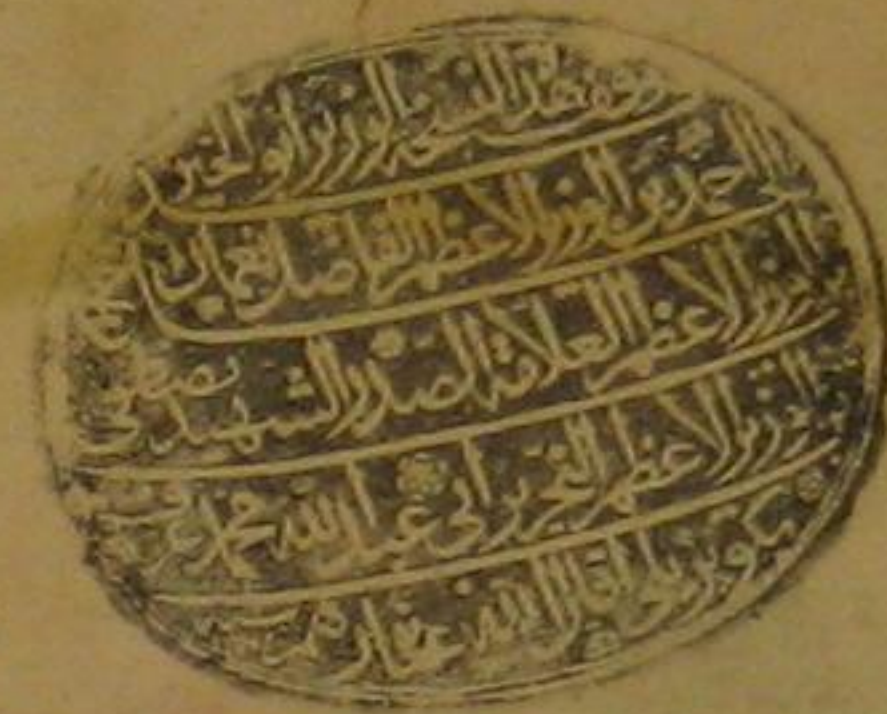 وقف هذه النسخة الوزير أبو الخير
احمد بن الوزير الاعظم الفاضل نعمان بن
الوزير الاعظم العلامة الصدر الشهيد مصطفى
الوزير الاعظم النحرير ابي عبد الله محمد عرف
بكوپريلي اقال الله عثارهم